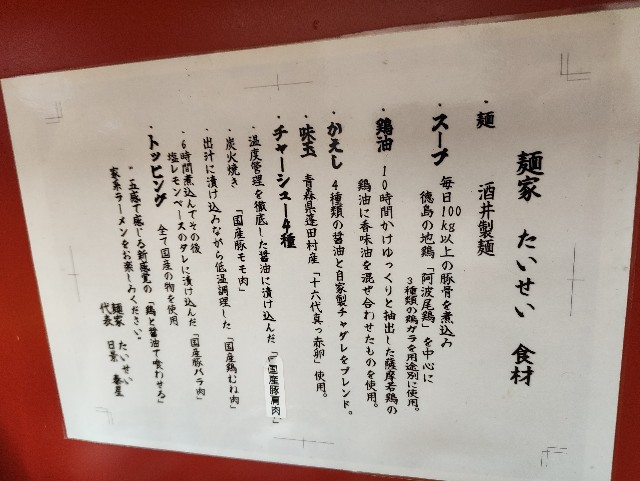 麺家 たいせい 食材
・麺 酒井製麺
・スープ 毎日100kg以上の豚骨を煮込み
徳島の地鶏「阿波尾鶏」を中心に
3種類の鶏ガラを用途別に使用。
・鶏油 10時間かけゆっくりと抽出した薩摩若鶏の
鶏油に香味油を混ぜ合わせたものを使用。
・かえし 4種類の醤油と自家製チャダレをブレンド。
・味玉 青森県蓬田村産「十六代真っ赤卵」使用。
・チャーシュー4種
・温度管理を徹底した醤油に漬け込んだ「国産豚肩肉」
・炭火焼き 「国産豚モモ肉」
・出汁に漬け込みながら低温調理した「国産鶏むね肉」
・6時間煮込んでその後
塩レモンベースのタレに漬け込んだ「国産豚バラ肉」
・トッピング 全て国産の物を使用
・五感で感じる新感覚の「鶏と醤油で喰わせる」
家系ラーメンをお楽しみください。
麺家 たいせい
代表 日景 泰星